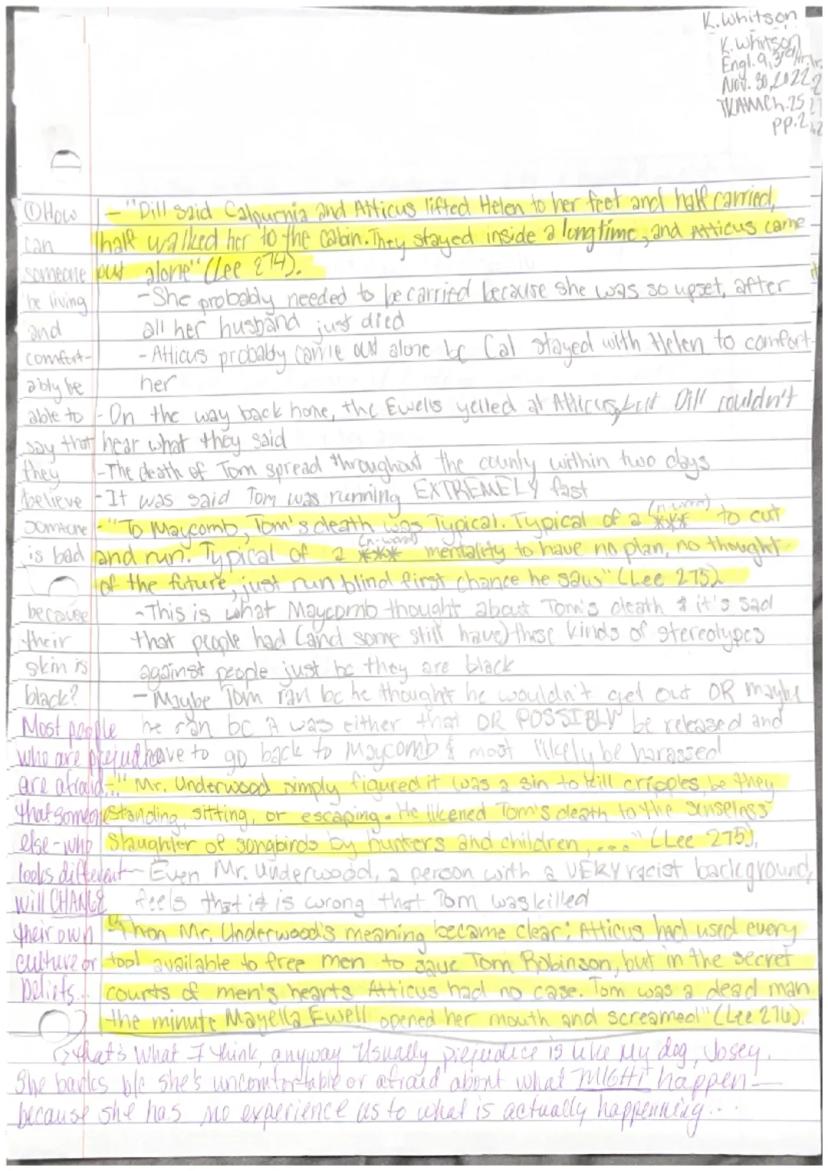 K. Whitson
K. Whitson
Engl. 9, 3rd Hr.
Nov. 30, 2022
TKAM Ch. 25
pp. 2
① How — "Dill said Calpurnia and Atticus lifted Helen to her feet and half carried,
can half walked her to the cabin. They stayed inside a long time, and Atticus came
someone out alone" (Lee 274).
be living - She probably needed to be carried because she was so upset, after
and all her husband just died
comfort- - Atticus probably came out alone bc Cal stayed with Helen to comfort
ably be her
able to - On the way back home, the Ewells yelled at Atticus, but Dill couldn't
say that hear what they said
they - The death of Tom spread throughout the county within two days
believe - It was said Tom was running EXTREMELY fast
someone - "To Maycomb, Tom's death was Typical. Typical of a (n-word) *** to cut
is bad and run. Typical of a (n-word) *** mentality to have no plan, no thought
of the future, just run blind first chance he saw" (Lee 275).
because - This is what Maycomb thought about Tom's death & it's sad
their that people had (and some still have) these kinds of stereotypes
skin is against people just bc they are black
black? - Maybe Tom ran bc he thought he wouldn't get out OR maybe
Most people he ran bc it was either that OR POSSIBLY be released and
who are prejudice have to go back to Maycomb & most likely be harassed
are afraid - "Mr. Underwood simply figured it was a sin to kill cripples, be they
that someone standing, sitting, or escaping. He likened Tom's death to the senseless
else - who slaughter of songbirds by hunters and children, ..." (Lee 275).
looks different — Even Mr. Underwood, a person with a VERY racist background,
will CHANGE feels that it is wrong that Tom was killed
their own "Then Mr. Underwood's meaning became clear: Atticus had used every
culture or tool available to free men to save Tom Robinson, but in the secret
beliefs... courts of men's hearts Atticus had no case. Tom was a dead man
the minute Mayella Ewell opened her mouth and screamed" (Lee 276).
that's what I think, anyway. Usually prejudice is like my dog, Josey.
She barks b/c she's uncomfortable or afraid about what MIGHT happen —
because she has no experience as to what is actually happenning...